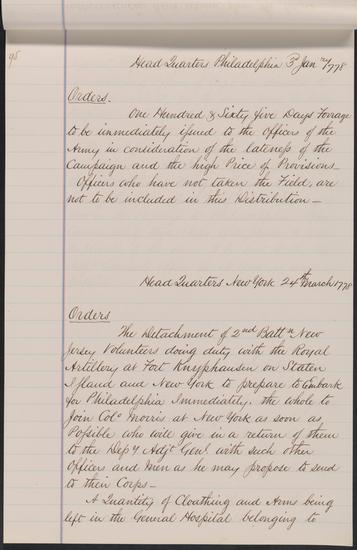 95
Head Quarters Philadelphia 3 Jany 1778
Orders.
One Hundred & Sixty five Days Forrage
to be immediately issued to the Officers of the
Army in consideration of the lateness of the
Campaign and the high Price of Provisions_
Officers who have not taken the Field, are
not to be included in this Distribution_
Head Quarters New York 24th March 1778
Orders
The Detachment of 2nd Battn New
Jersey Volunteers doing duty with the Royal
Artillery at Fort Knyphausen on Staten
Island and New York to prepare to Embark
for Philadelphia Immediately. the whole to
Join Colo Morris at New York as soon as
Possible who will give in a return of them
to the Depy Adjt Genl with such other
Officers and Men as he may propose to send
to their Corps_
A Quantity of Cloathing and Arms being
left in the General Hospital belonging to